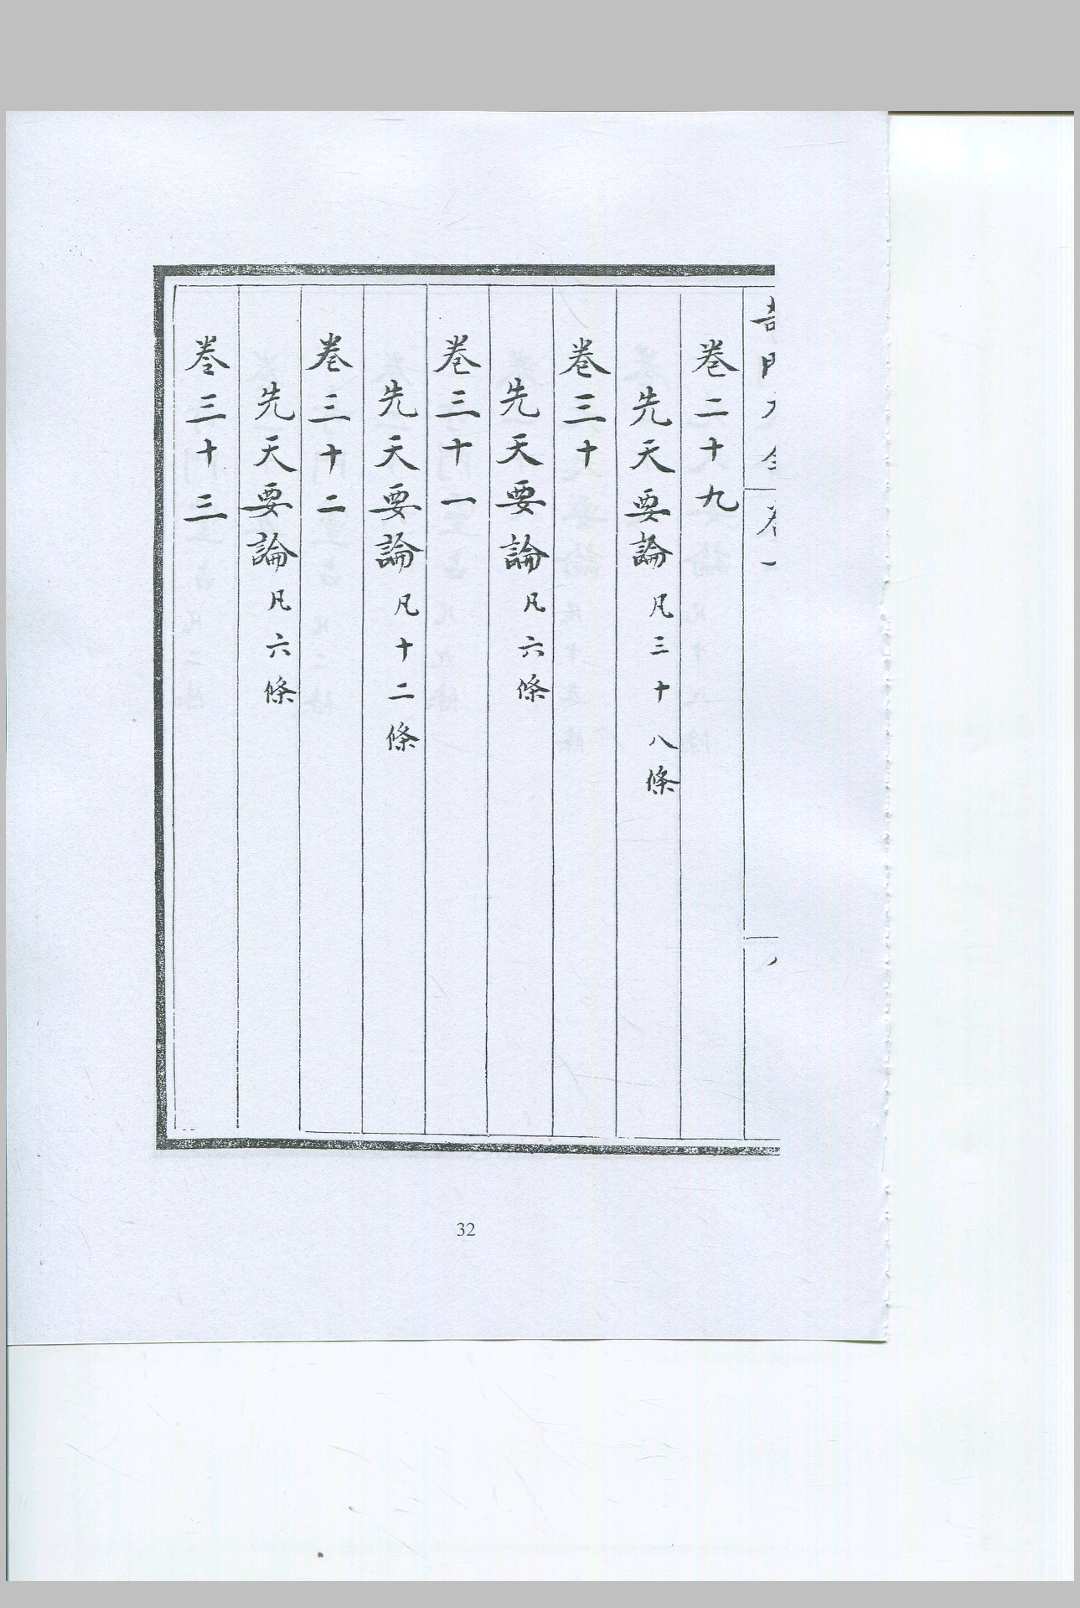 卷一
卷二十九
先天要論凡三十八條
卷三十
先天要論凡六條
卷三十一
先天要論凡十二條
卷三十二
先天要論凡六條
卷三十三
32